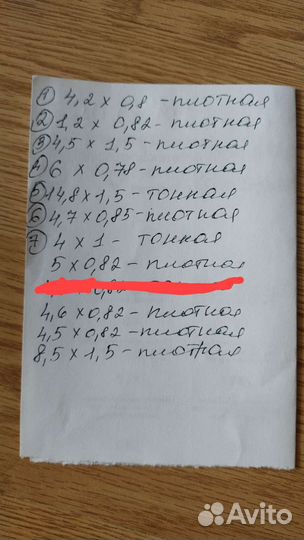 1 4,2 x 0,8 - плотная
2 1,2 x 0,82 - плотная
3 4,5 x 1,5 - плотная
4 6 x 0,78 - плотная
5 14,8 x 1,5 - тонная
6 4,7 x 0,85 - плотная
7 4 x 1 - тонная
5 x 0,82 - плотная
4,6 x 0,82 - плотная
4,5 x 0,82 - плотная
8,5 x 1,5 - плотная
Avito